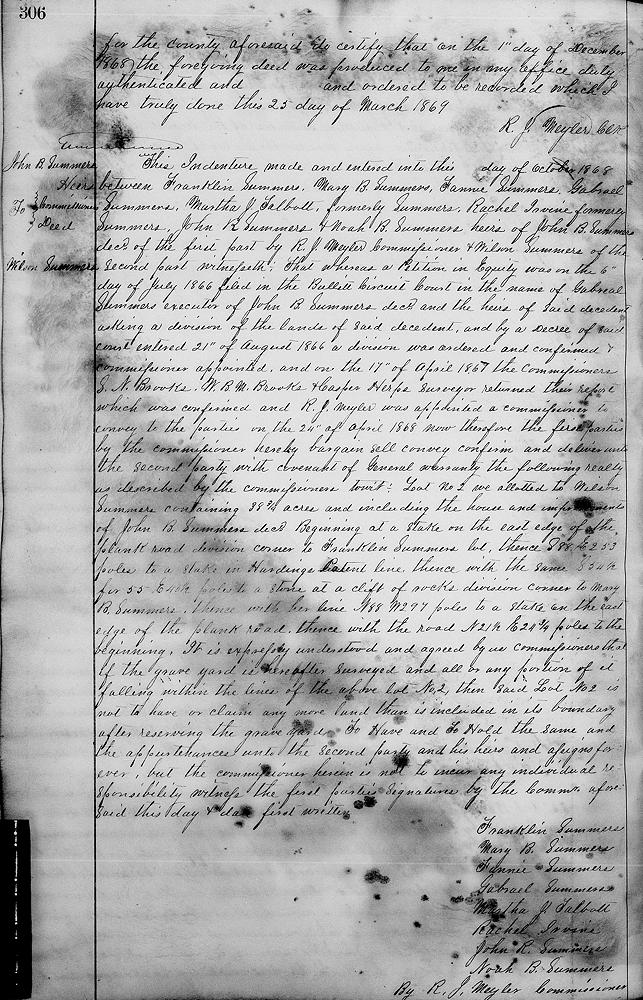 306
for the county aforesaid do certify that on the 1st day of December
1868 the foregoing deed was produced to me in my office duly
authenticated and and ordered to be recorded which I
have truly done this 25 day of March 1869
R. J. Meyler Clk
John B. Summers
Heirs
To Commissioners
Deed
Wilson Summers
This Indenture made and entered into this day of October 1868
between Franklin Summers, Mary B. Summers, Fannie Summers, Gabrael
Summers, Martha J Talbott, formerly Summers, Rachel Irvine formerly
Summers, John R Summers & Noah B. Summers heirs of John B. Summers
decd of the first part by R. J. Meyler Commissioner & Wilson Summers of the
Second part witnesseth; That whereas a Petition in Equity was on the 6"
day of July 1866 filed in the Bullitt Circuit Court in the name of Gabreal
Summers executor of John B. Summers decd and the heirs of said decedent
asking a division of the lands of said decedent, and by a Decree of said
court entered 21" of August 1866 a division was ordered and confirmed &
commissioner appointed, and on the 17" of April 1867 the Commissioners
S. N. Brooks, W. B. M. Brooks & Casper Herps Surveyor returned their report
which was confirmed and R. J. Meyler was appointed a commissioner to
convey to the parties on the 24" of April 1868 now therefore the first parties
by the commissioner hereby bargain sell convey confirm and deliver unto
the second party with covenant of General warranty the following realty
as described by the commissioners towit: Lot No 2 we allotted to Wilson
Summers containing 38 3/4 acres and including the house and improvements
of John B. Summers decd Beginning at a stake on the east edge of the
plank road division corner to Franklin Summers lot, thence S 88 E 253
poles to a stake in Hardings Patent line, thence with the same S 34 1/2
for 55 E 40 1/2 poles to a stone at a clift of rocks division corner to Mary
B. Summers, thence with her line N 88 W 297 poles to a stake on the east
edge of the plank road, thence with the road N 21 1/2 E 24 3/4 poles to the
beginning, It is expressly understood and agreed by us commissioners that
if the grave yard is hereafter surveyed and all or any portion of it
falling within the lines of the above lot No 2, then said Lot No 2 is
not to have or claim any more land than is included in its boundary
after reserving the grave yard. To Have and To Hold the same and
the appurtenances unto the second party and his heirs and assigns for-
ever, but the commissioner herein is not to incur any individual re-
sponsibility witness the first parties signature by the Commr. afore-
said this day & date first written
Franklin Summers
Mary B. Summers
Fannie Summers
Gabrael Summers
Martha J Talbott
Rachel Irvine
John R. Summers
Noah B. Summers
By R. J. Meyler Commissioner